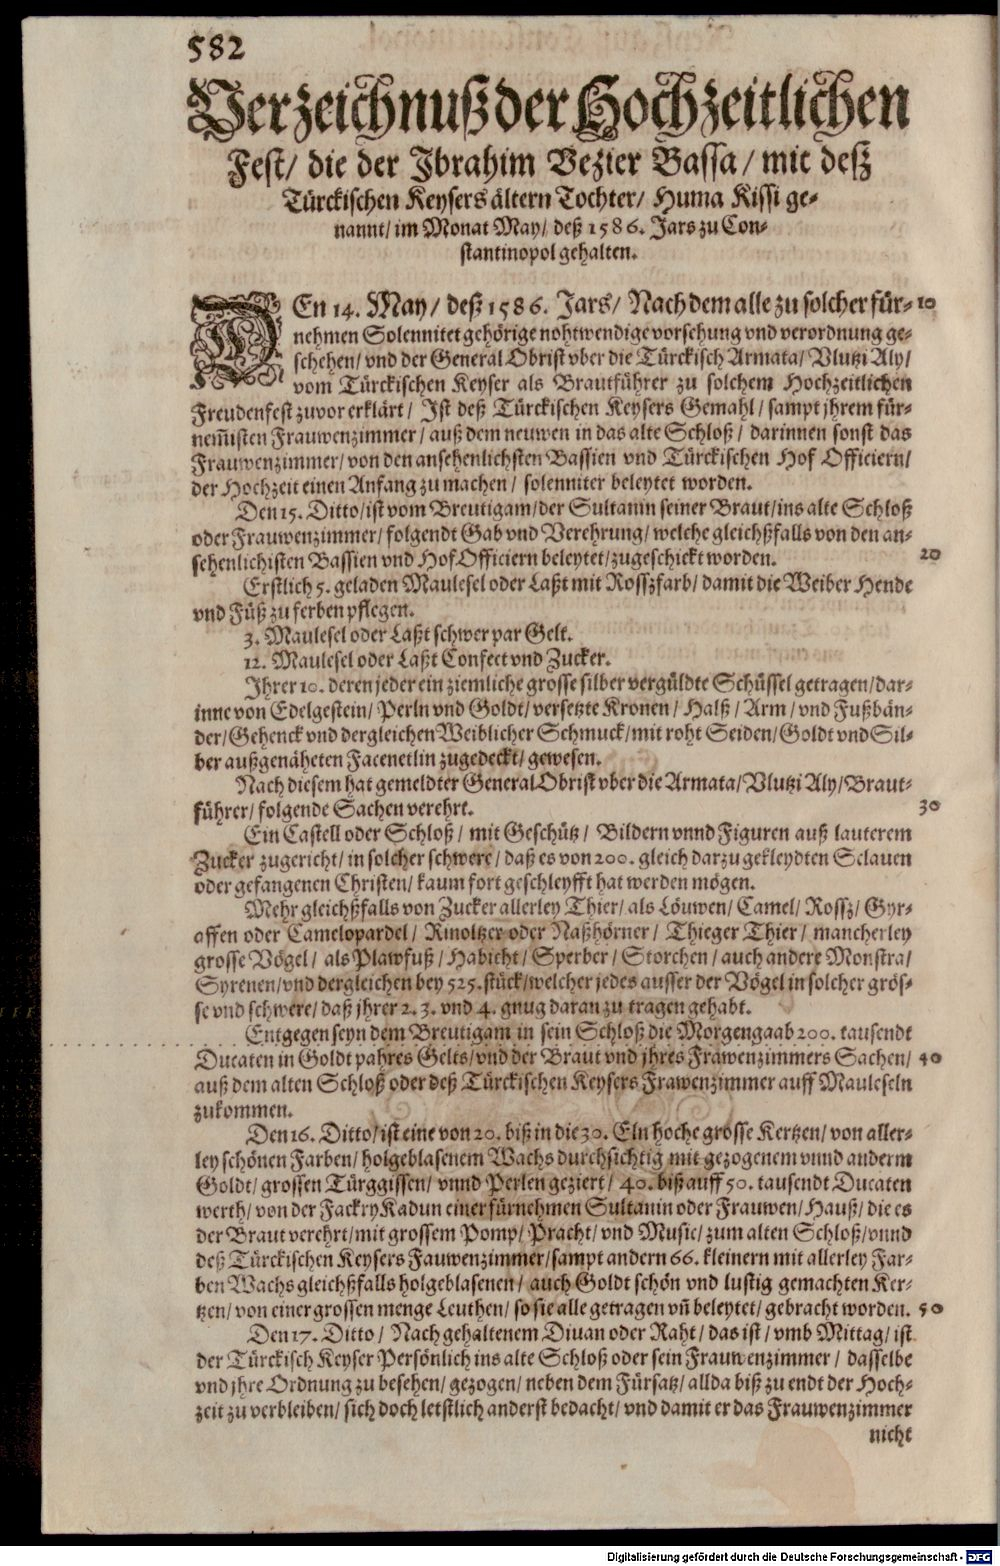 582
Verzeichnuß der Hochzeitlichen
Fest/ die der Ibrahim Vezier Bassa/ mit deß
Türckischen Keysers ältern Tochter/ Huma Kissi ge-
nannt/ im Monat May/ deß 1586. Jars zu Con-
stantinopol gehalten.
DEn 14. May/ deß 1586. Jars/ Nach dem alle zu solcher für- 10
nehmen Solennitet gehörige nohtwendige vorsehung vnd verordnung ge-
schehen/ vnd der General Obrist vber die Türckisch Armata/ Vlutzi Aly/
vom Türckischen Keyser als Brautführer zu solchem Hochzeitlichen
Freudenfest zuvor erklärt/ Ist deß Türckischen Keysers Gemahl/ sampt jhrem für-
nem̃isten Frauwenzimmer/ auß dem neuwen in das alte Schloß/ darinnen sonst das
Frauwenzimmer/ von den ansehenlichsten Bassien vnd Türckischen Hof Officiern/
der Hochzeit einen Anfang zu machen/ solenniter beleytet worden.
Den 15. Ditto/ ist vom Breutigam/ der Sultanin seiner Braut/ ins alte Schloß
oder Frauwenzimmer/ folgendt Gab vnd Verehrung/ welche gleichßfalls von den an-
sehenlichisten Bassien vnd Hof Officiern beleytet/ zugeschickt worden. 20
Erstlich 5. geladen Maulesel oder Laßt mit Rosszfarb/ damit die Weiber Hende
vnd Füß zu ferben pflegen.
3. Maulesel oder Laßt schwer par Gelt.
12. Maulesel oder Laßt Confect vnd Zucker.
Ihrer 10. deren jeder ein ziemliche grosse silber vergüldte Schüssel getragen/ dar-
inne von Edelgestein/ Perln vnd Goldt/ versetzte Kronen/ Halß/ Arm/ vnd Fußbän-
der/ Gehenck vnd dergleichen Weiblicher Schmuck/ mit roht Seiden/ Goldt vnd Sil-
ber außgenäheten Facenetlin zugedeckt/ gewesen.
Nach diesem hat gemeldter General Obrist vber die Armata/ Vlutzi Aly/ Braut-
führer/ folgende Sachen verehrt. 30
Ein Castell oder Schloß/ mit Geschütz/ Bildern vnnd Figuren auß lauterem
Zucker zugericht/ in solcher schwere/ daß es von 200. gleich darzu gekleydten Sclauen
oder gefangenen Christen/ kaum fort geschleyfft hat werden mögen.
Mehr gleichßfalls von Zucker allerley Thier/ als Löuwen/ Camel/ Rossz/ Gyr-
affen oder Camelopardel/ Rinoltzer oder Naßhörner/ Thieger Thier/ mancherley
grosse Vögel/ als Plawfuß/ Habicht/ Sperber/ Storchen/ auch andere Monstra/
Syrenen/ vnd dergleichen bey 525. stück/ welcher jedes ausser der Vögel in solcher grös-
se vnd schwere/ daß jhrer 2. 3. vnd 4. gnug daran zu tragen gehabt.
Entgegen seyn dem Breutigam in sein Schloß die Morgengaab 200. tausendt
Ducaten in Goldt pahres Gelts/ vnd der Braut vnd jhres Frawenzimmers Sachen/ 40
auß dem alten Schloß oder deß Türckischen Keysers Frawenzimmer auff Mauleseln
zukommen.
Den 16. Ditto/ ist eine von 20. biß in die 30. Eln hoche grosse Kertzen/ von aller-
ley schönen Farben/ holgeblasenem Wachs durchsichtig mit gezogenem vnnd anderm
Goldt/ grossen Türggissen/ vnnd Perlen geziert/ 40. biß auff 50. tausendt Ducaten
werth/ von der Fackry Kadun einer fürnehmen Sultanin oder Frauwen/ Hauß/ die es
der Braut verehrt/ mit grossem Pomp/ Pracht/ vnd Music/ zum alten Schloß/ vnnd
deß Türckischen Keysers Fauwenzimmer/ sampt andern 66. kleinern mit allerley Far-
ben Wachs gleichßfalls holgeblasenen/ auch Goldt schön vnd lustig gemachten Ker-
tzen/ von einer grossen menge Leuthen/ so sie alle getragen vn̄ beleytet/ gebracht worden. 50
Den 17. Ditto/ Nach gehaltenem Diuan oder Raht/ das ist/ vmb Mittag/ ist
der Türckisch Keyser Persönlich ins alte Schloß oder sein Frauwenzimmer/ dasselbe
vnd jhre Ordnung zu besehen/ gezogen/ neben dem Fürsatz/ allda biß zu endt der Hoch-
zeit zu verbleiben/ sich doch letstlich anderst bedacht/ vnd damit er das Frauwenzimmer
nicht
Digitalisierung gefördert durch die Deutsche Forschungsgemeinschaft - DFG